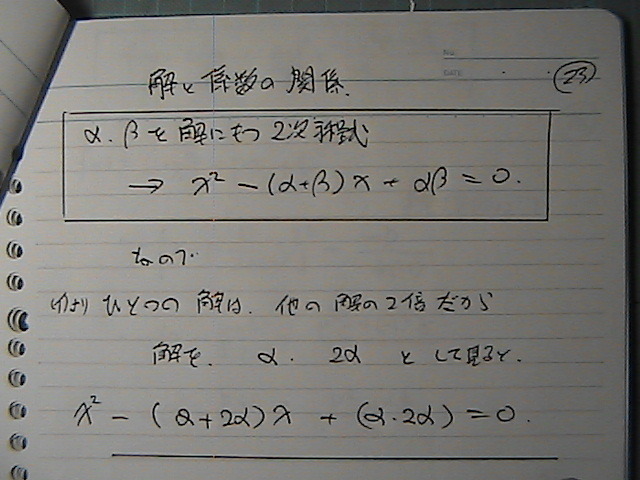 No.
DATE
23
解と係数の関係.
α.βを解にもつ2次方程式
→ x² - (α+β)x + αβ = 0.
なので
(1)より ひとつの解は. 他の解の2倍だから
解を. α. 2α として見ると.
x² - (α+2α)x + (α・2α) = 0.